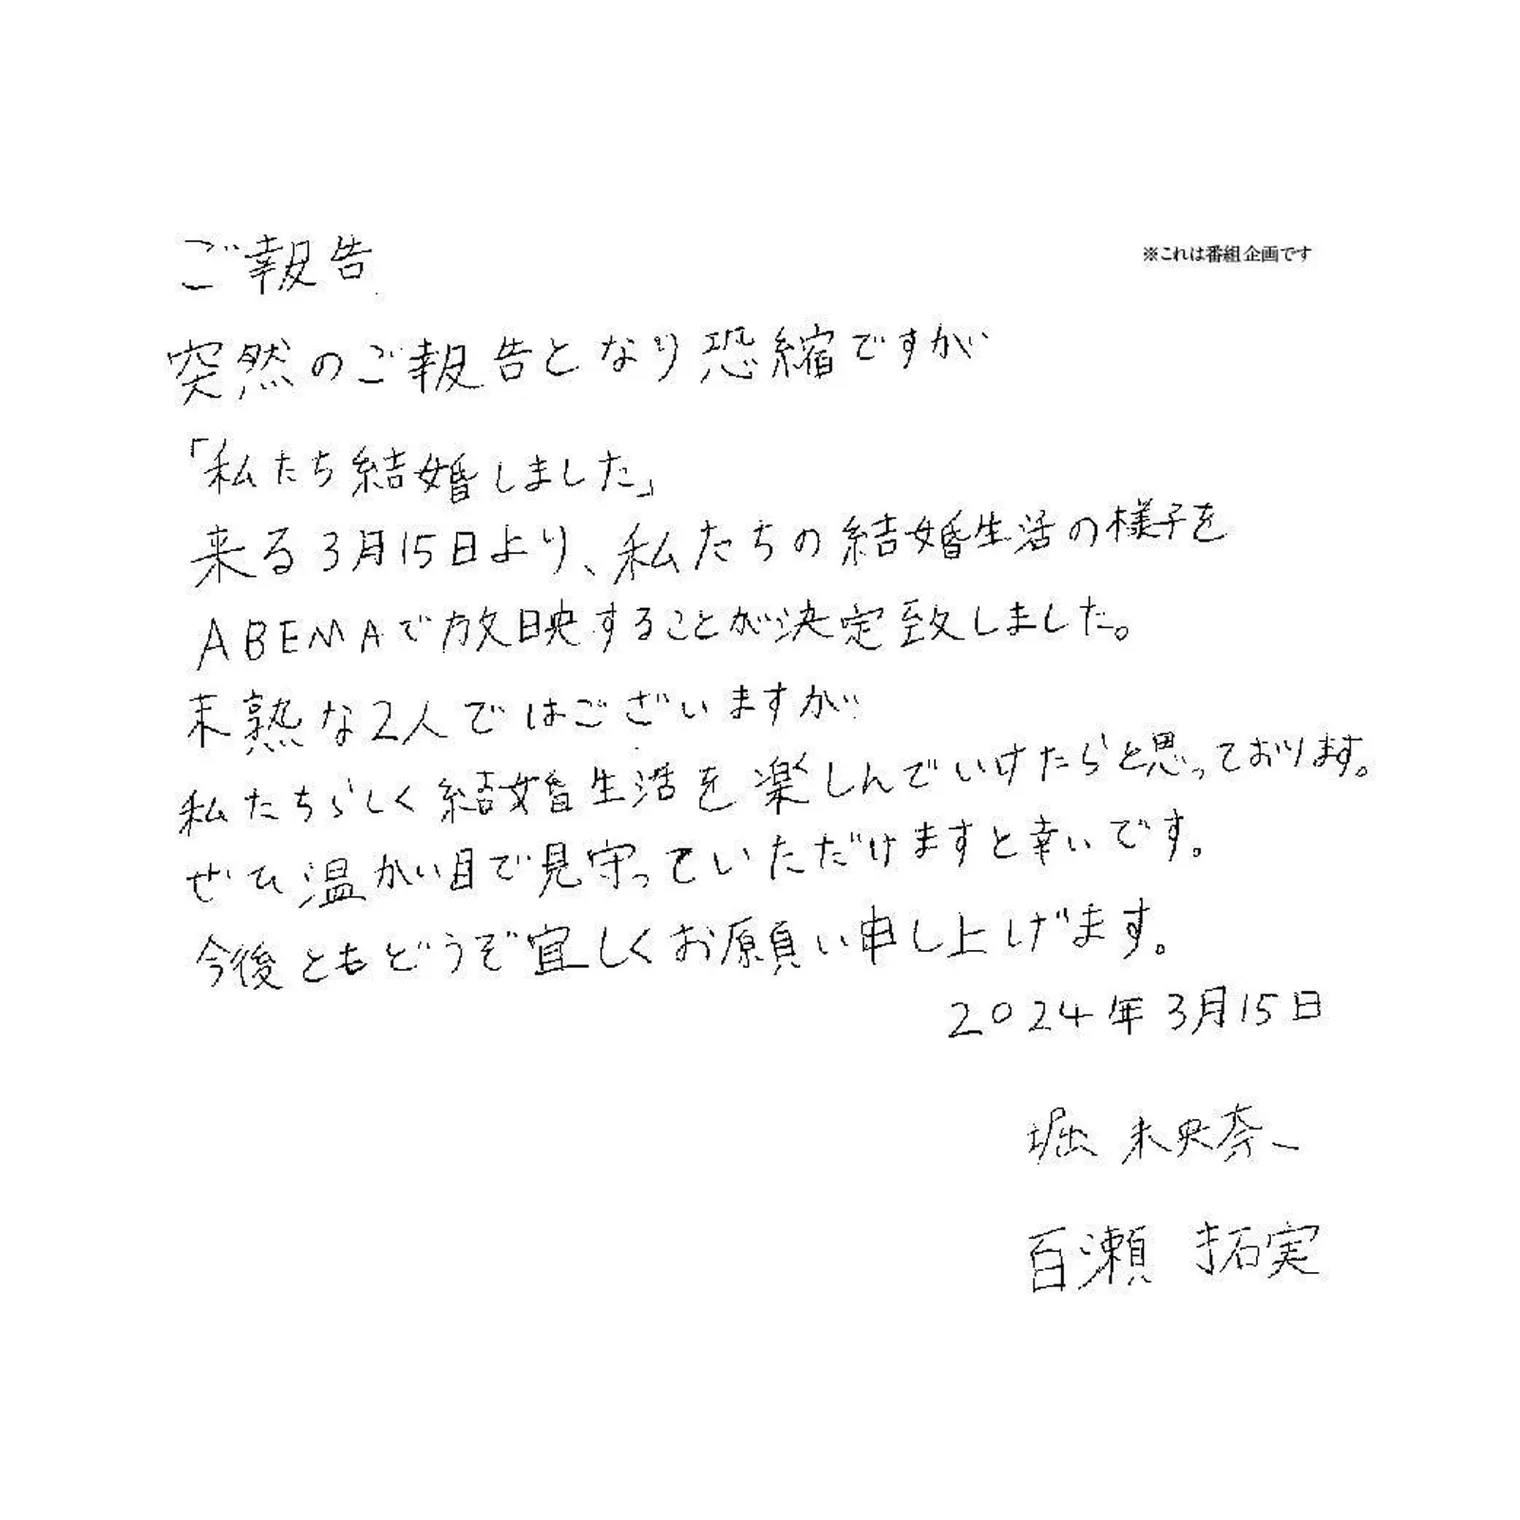 ご報告
※これは番組企画です
突然のご報告となり恐縮ですが
「私たち結婚しました」
来る3月15日より、私たちの結婚生活の様子を
ABEMAで放映することが決定致しました。
末熟な2人ではございますが
私たちらしく結婚生活を楽しんでいけたらと思っております。
ぜひ温かい目で見守っていただけますと幸いです。
今後ともどうぞ宜しくお願い申し上げます。
2024年3月15日
堀 未央奈
百瀬 拓実